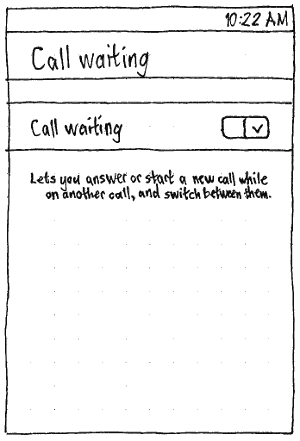 10:22 AM
Call waiting
Call waiting
Lets you answer or start a new call while
on another call, and switch between them.